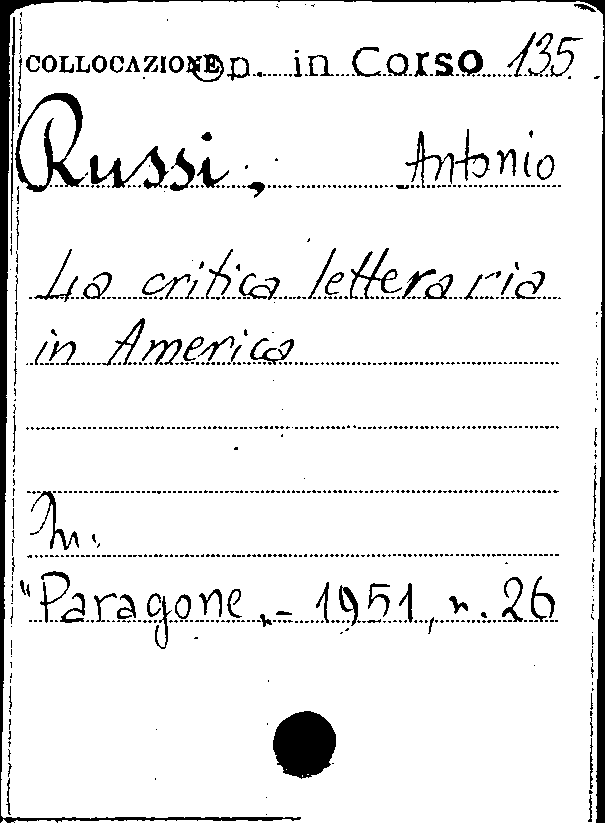 COLLOCAZIONE Op. in Corso 135
Russi, Antonio
La critica letteraria
in America
In:
"Paragone„ - 1951, n. 26